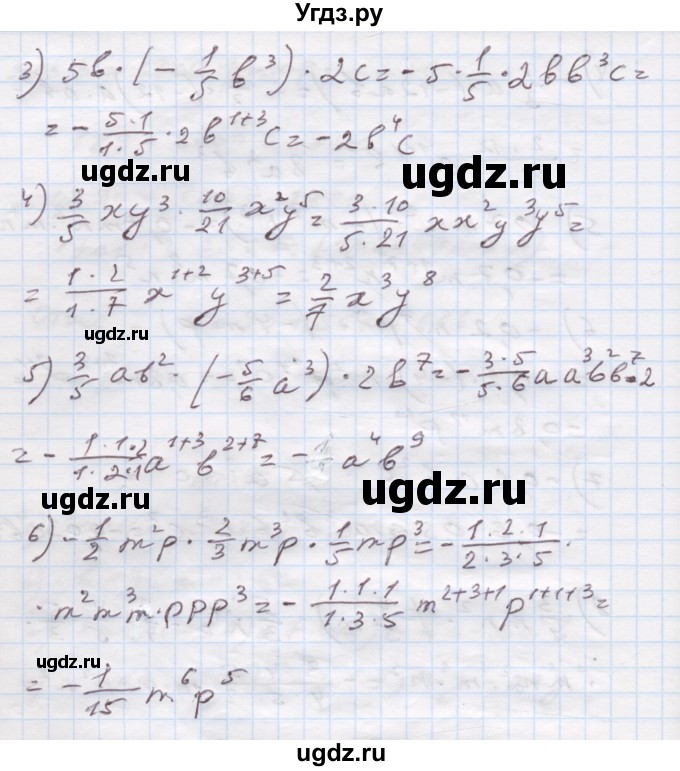 Угдз.ру
3) 5в · (- 1/5 в³) · 2с = - 5 · 1/5 · 2вв³с =
= - (5·1)/(1·5) · 2в¹⁺³с = - 2в⁴с
ugdz.ru ugdz.ru
4) 3/5 xy³ · 10/21 x²y⁵ = (3·10)/(5·21) xx²y³y⁵ =
= (1·2)/(1·7) x¹⁺²y³⁺⁵ = 2/7 x³y⁸
ugdz.ru
5) 3/5 ав² · (- 5/6 а³) · 2в⁷ = - (3·5)/(5·6) аа³в²в⁷·2
= - (1·1·2)/(1·2·1) а¹⁺³в²⁺⁷ = - а⁴в⁹
ugdz.ru ugdz.ru
6) - 1/2 m²p · 2/3 m³p · 1/5 mp³ = - (1·2·1)/(2·3·5) ·
· m²m³m·ppp³ = - (1·1·1)/(1·3·5) m²⁺³⁺¹p¹⁺¹⁺³ =
ugdz.ru
= - 1/15 m⁶p⁵
ugdz.ru
ugdz.ru